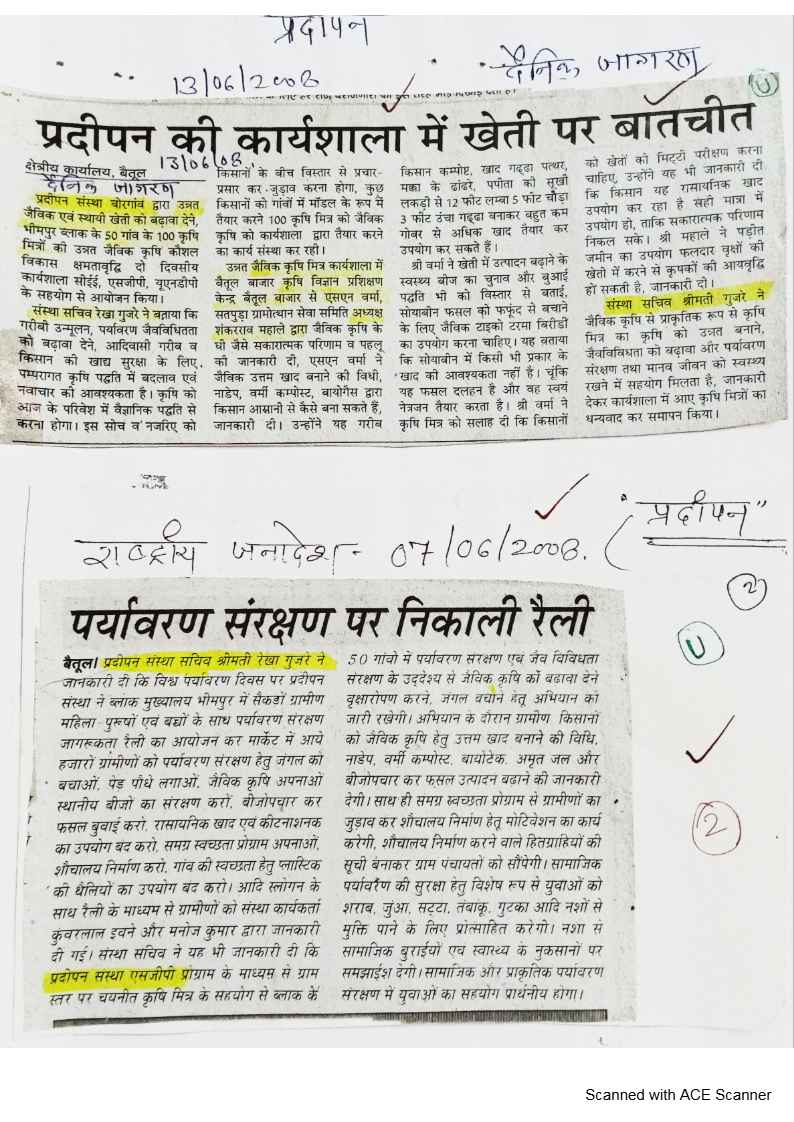 प्रदीपन
13/06/2008
दैनिक जागरण
U
प्रदीपन की कार्यशाला में खेती पर बातचीत
13/06/08
दैनिक जागरण
क्षेत्रीय कार्यालय, बैतूल
प्रदीपन संस्था बोरगांव द्वारा उन्नत
जैविक एवं स्थायी खेती को बढ़ावा देने,
भीमपुर ब्लाक के 50 गांव के 100 कृषि
मित्रों की उन्नत जैविक कृषि कौशल
विकास क्षमतावृद्धि दो दिवसीय
कार्यशाला सीईई, एसजीपी, यूएनडीपी
के सहयोग से आयोजन किया।
संस्था सचिव रेखा गुजरे ने बताया कि
गरीबी उन्मूलन, पर्यावरण जैवविधितता
को बढ़ावा देने, आदिवासी गरीब व
किसान को खाद्य सुरक्षा के लिए,
पम्परागत कृषि पद्धति में बदलाव एवं
नवाचार की आवश्यकता है। कृषि को
आज के परिवेश में वैज्ञानिक पद्धति से
करना होगा। इस सोच व नजरिए को
किसानों के बीच विस्तार से प्रचार-
प्रसार कर जुड़ाव करना होगा, कुछ
किसानों को गांवों में मॉडल के रूप में
तैयार करने 100 कृषि मित्र को जैविक
कृषि को कार्यशाला द्वारा तैयार करने
का कार्य संस्था कर रही।
उन्नत जैविक कृषि मित्र कार्यशाला में
बैतूल बाजार कृषि विज्ञान प्रशिक्षण
केन्द्र बैतूल बाजार से एसएन वर्मा,
सतपुड़ा ग्रामोत्थान सेवा समिति अध्यक्ष
शंकरराव महाले द्वारा जैविक कृषि के
घी जैसे सकारात्मक परिणाम व पहलू
की जानकारी दी, एसएन वर्मा ने
जैविक उत्तम खाद बनाने की विधी,
नाडेप, वर्मी कम्पोस्ट, बायोगैस द्वारा
किसान आसानी से कैसे बना सकते हैं,
जानकारी दी। उन्होंने यह गरीब
किसान कम्पोष्ट, खाद गढ्ढा पत्थर,
मक्का के ढांढरे, पपीता की सूखी
लकड़ी से 12 फीट लम्बा 5 फीट चौड़ा
3 फीट उंचा गढ्ढा बनाकर बहुत कम
गोबर से अधिक खाद तैयार कर
उपयोग कर सकते हैं।
श्री वर्मा ने खेती में उत्पादन बढ़ाने के
स्वस्थ्य बीज का चुनाव और बुआई
पद्धति भी को विस्तार से बताई,
सोयाबीन फसल को फफूंद से बचाने
के लिए जैविक टाइको टरमा बिरीडी
का उपयोग करना चाहिए। यह बताया
कि सोयाबीन में किसी भी प्रकार के
खाद की आवश्यकता नहीं है। चूंकि
यह फसल दलहन है और वह स्वयं
नेत्रजन तैयार करता है। श्री वर्मा ने
कृषि मित्र को सलाह दी कि किसानों
को खेतों की मिट्टी परीक्षण करना
चाहिए, उन्होंने यह भी जानकारी दी
कि किसान यह रासायनिक खाद
उपयोग कर रहा है सही मात्रा में
उपयोग हो, ताकि सकारात्मक परिणाम
निकल सके। श्री महाले ने पड़ीत
जमीन का उपयोग फलदार वृक्षों की
खेती में करने से कृषकों की आयवृद्धि
हो सकती है, जानकारी दी।
संस्था सचिव श्रीमती गुजरे ने
जैविक कृषि से प्राकृतिक रूप से कृषि
मित्र का कृषि को उन्नत बनाने,
जैवविविधता को बढ़ावा और पर्यावरण
संरक्षण तथा मानव जीवन को स्वस्थ्य
रखने में सहयोग मिलता है, जानकारी
देकर कार्यशाला में आए कृषि मित्रों का
धन्यवाद कर समापन किया।
राष्ट्रीय जनादेश - 07/06/2008. ( "प्रदीपन"
2
U
2
पर्यावरण संरक्षण पर निकाली रैली
बैतूल। प्रदीपन संस्था सचिव श्रीमती रेखा गुजरे ने
जानकारी दी कि विश्व पर्यावरण दिवस पर प्रदीपन
संस्था ने ब्लाक मुख्यालय भीमपुर में सैकडों ग्रामीण
महिला पुरूषों एवं बच्चों के साथ पर्यावरण संरक्षण
जागरूकता रैली का आयोजन कर मार्केट में आये
हजारों ग्रामीणों को पर्यावरण संरक्षण हेतु जंगल को
बचाओं, पेड पौधे लगाओं, जैविक कृषि अपनाओं
स्थानीय बीजो का संरक्षण करों, बीजोपचार कर
फसल बुवाई करो, रासायनिक खाद एवं कीटनाशनक
का उपयोग बंद करो, समग्र स्वच्छता प्रोग्राम अपनाओं,
शौचालय निर्माण करो, गांव की स्वच्छता हेतु प्लास्टिक
की थैलियों का उपयोग बंद करो। आदि स्लोगन के
साथ रैली के माध्यम से ग्रामीणों को संस्था कार्यकर्ता
कुंवरलाल इवने और मनोज कुमार द्वारा जानकारी
दी गई। संस्था सचिव ने यह भी जानकारी दी कि
प्रदीपन संस्था एसजीपी प्रोग्राम के माध्यम से ग्राम
स्तर पर चयनीत कृषि मित्र के सहयोग से ब्लाक के
50 गांवो में पर्यावरण संरक्षण एवं जैव विविधता
संरक्षण के उद्देश्य से जैविक कृषि कों बढावा देने
वृक्षारोपण करने, जंगल बचाने हेतू अभियान को
जारी रखेगी। अभियान के दौरान ग्रामीण किसानों
को जैविक कृषि हेतु उत्तम खाद बनाने की विधि,
नाडेप, वर्मी कम्पोस्ट, बायोटेक, अमृत जल और
बीजोपचार कर फसल उत्पादन बढाने की जानकारी
देगी। साथ ही समग्र स्वच्छता प्रोग्राम से ग्रामीणों का
जुड़ाव कर शौचालय निर्माण हेतु मोटिवेशन का कार्य
करेगी, शौचालय निर्माण करने वाले हितग्राहियों की
सूची बनाकर ग्राम पंचायतों को सौंपेगी। सामाजिक
पर्यावरण की सुरक्षा हेतु विशेष रूप से युवाओं को
शराब, जुंआ, सट्टा, तंबाकू, गुटका आदि नशों से
मुक्ति पाने के लिए प्रोत्साहित करेगी। नशा से
सामाजिक बुराईयों एवं स्वास्थ्य के नुकसानों पर
समझाईश देगी। सामाजिक और प्राकृतिक पर्यावरण
संरक्षण में युवाओं का सहयोग प्रार्थनीय होगा।
Scanned with ACE Scanner